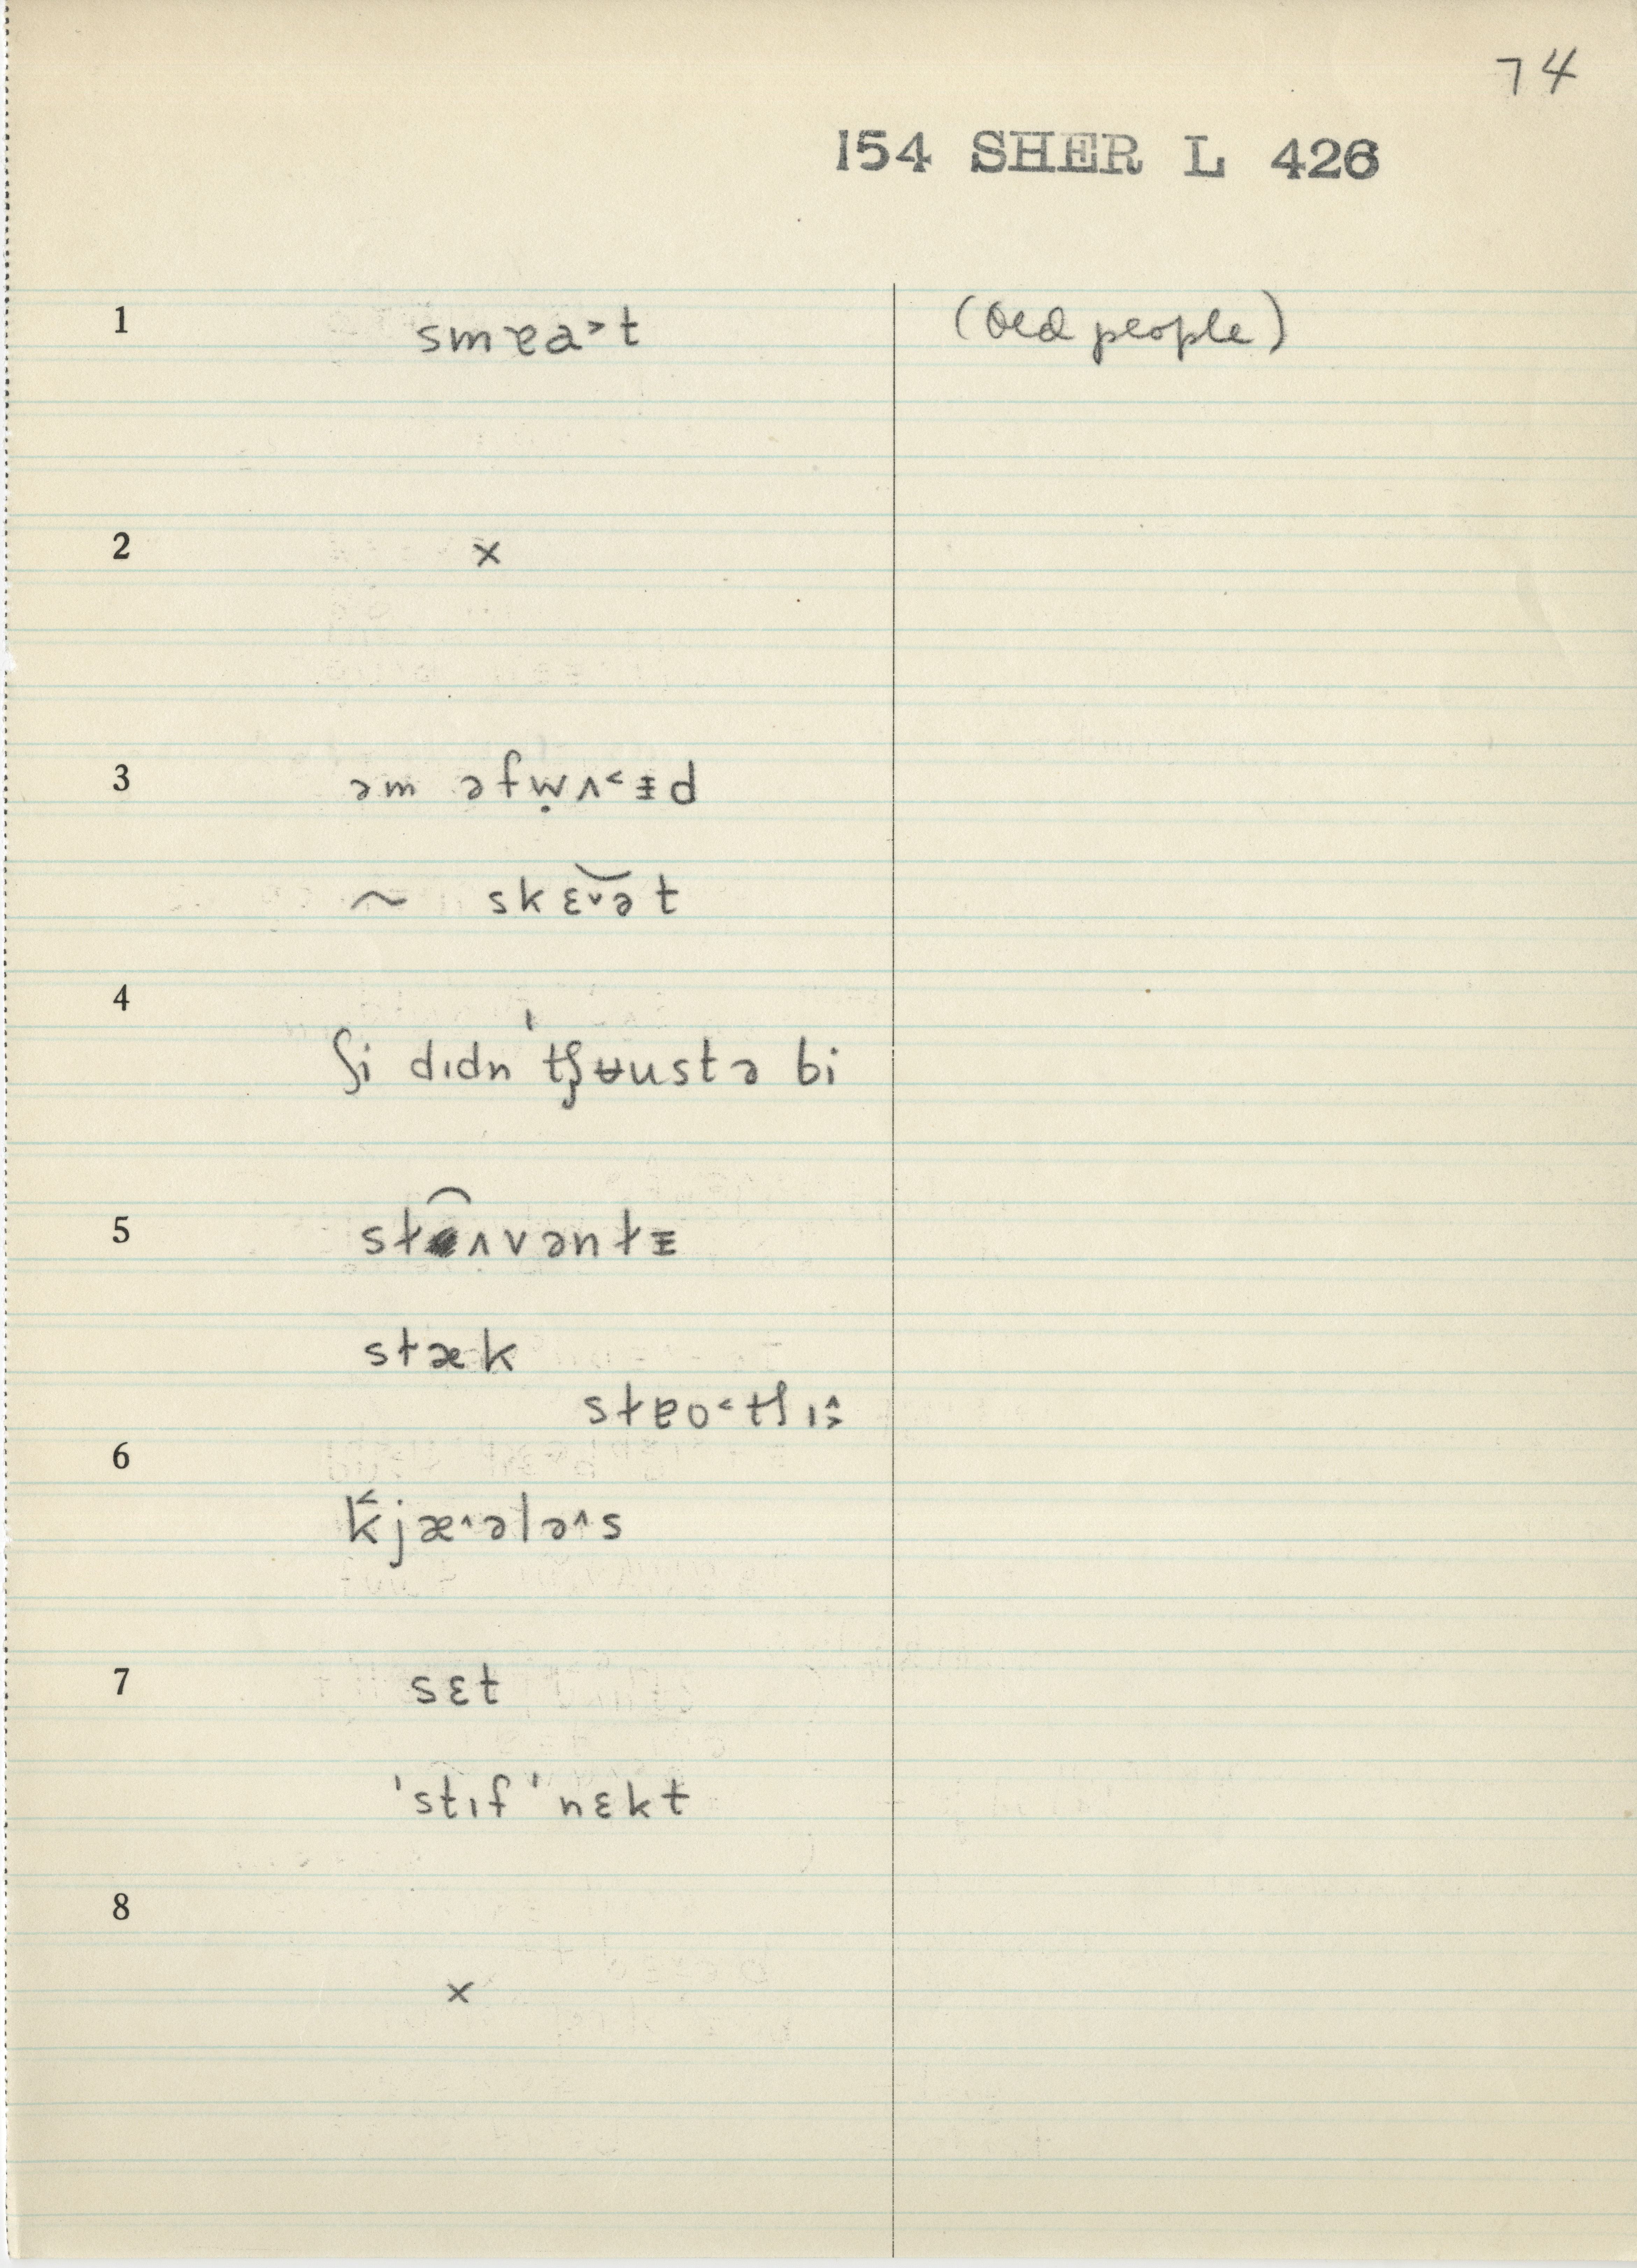 74
154 SHER L 426
1 smɐa˃t (Old people)
2 ×
3 əm əfẉʌ˂ɪd
~ skɛ˅ət
4
ʃi dɪdn 'tʃʉustə bi
5 stʌvənt
stæk
stɐo˂tʃɪ
6
k̂jæ˄ələ˄s
7 sɛt
'stɪf 'nɛkt
8
×